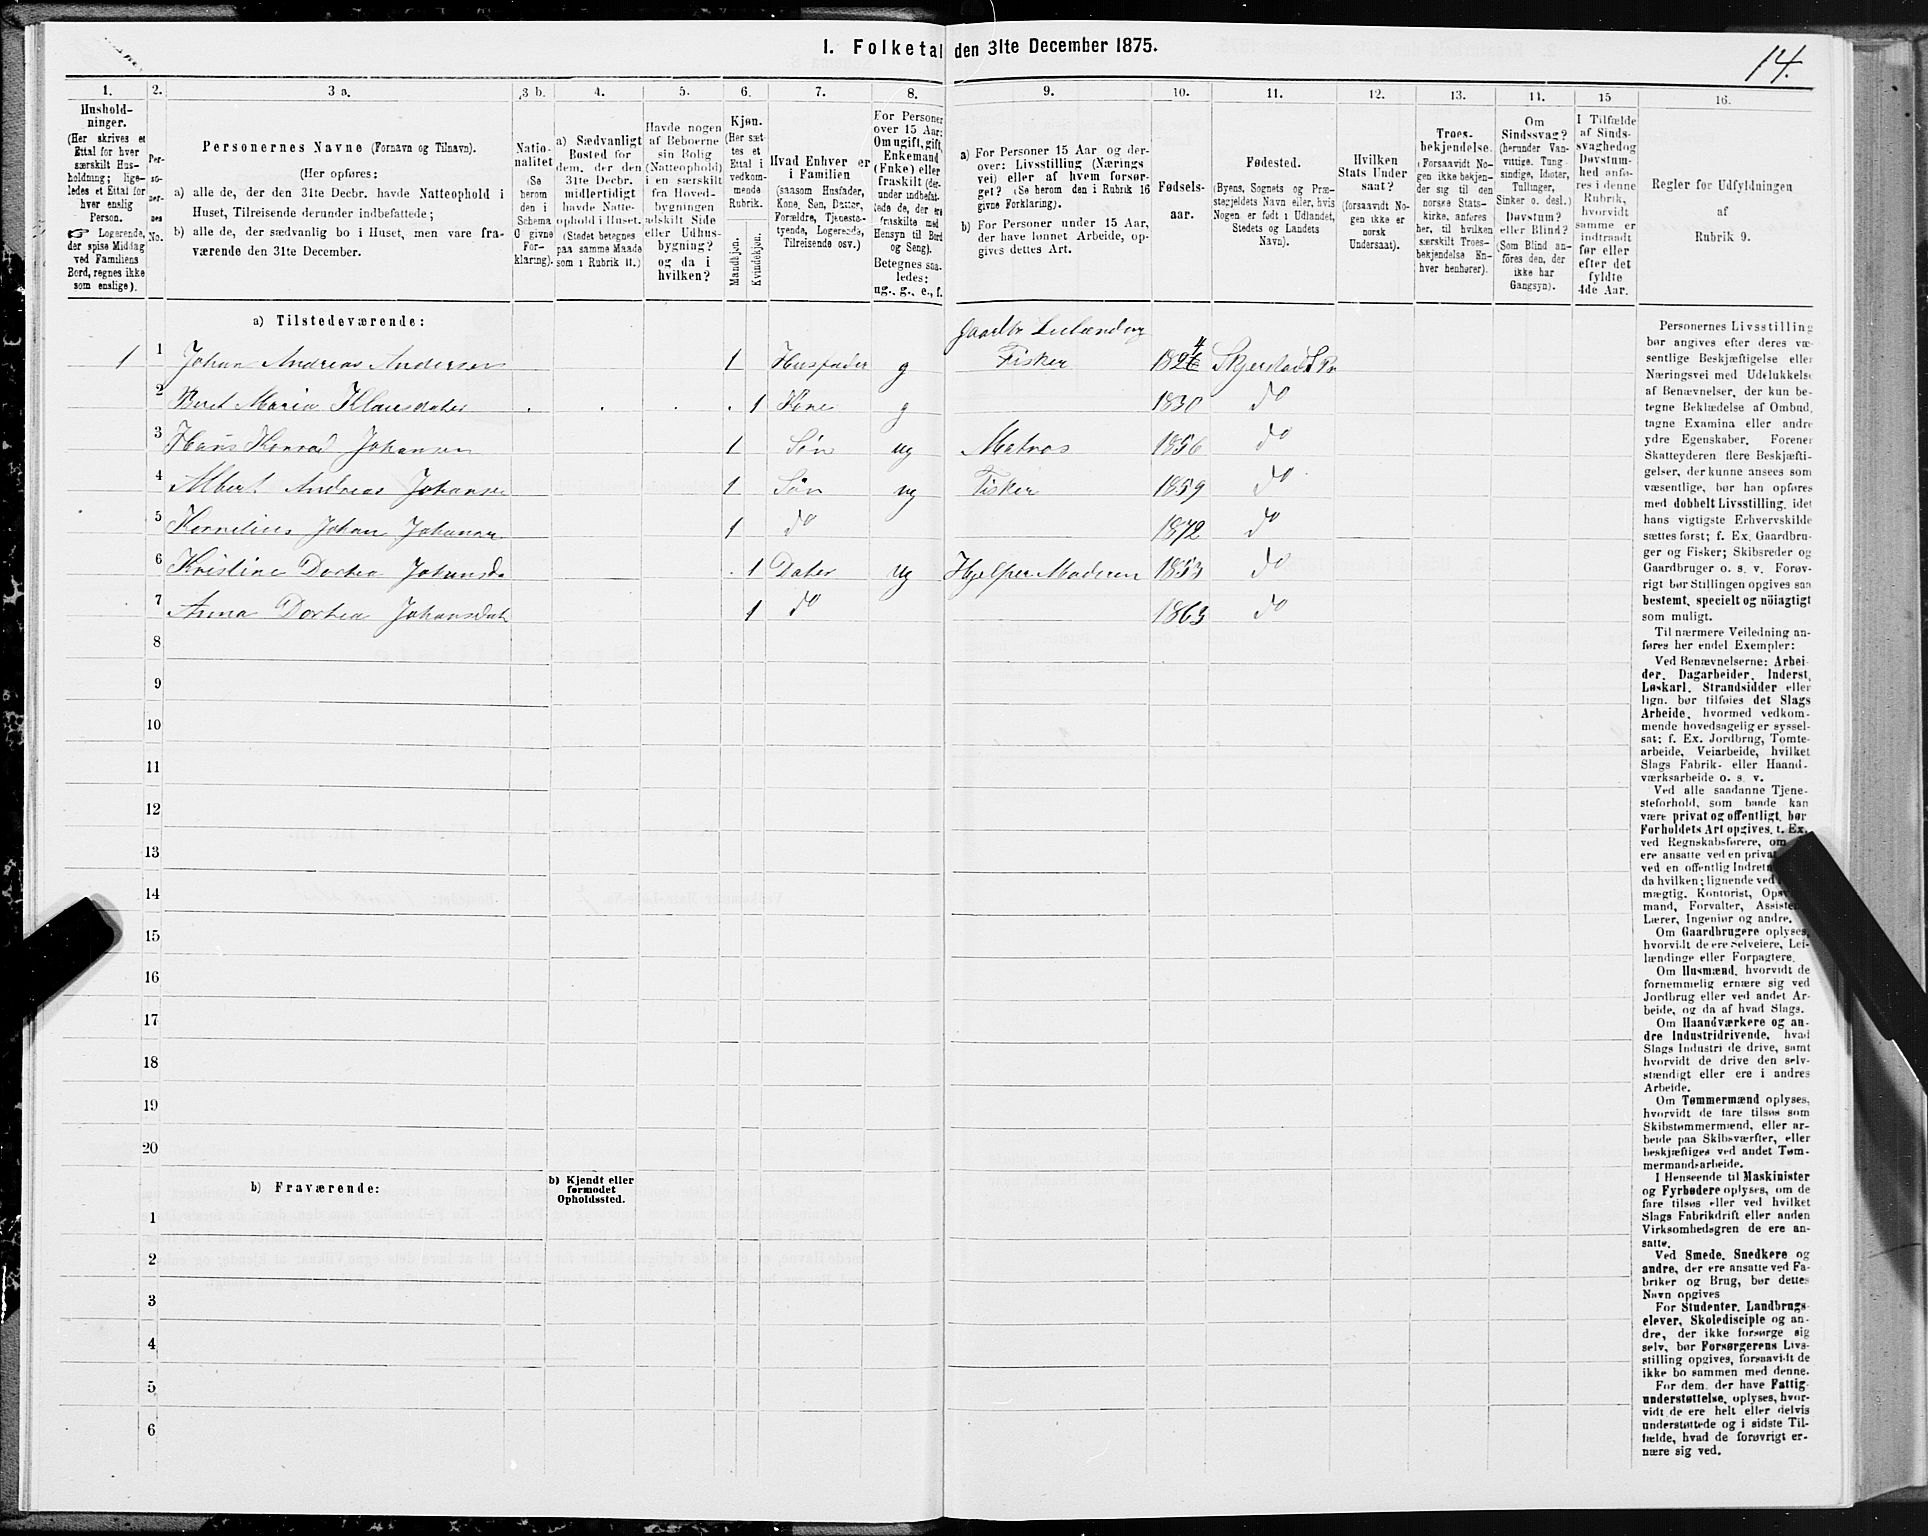 1. Folketal den 31te December 1875.
14.
1. 2. 3 a. 3 b. 4. 5. 6. 7. 8. 9. 10. 11. 12. 13. 14. 15 16.
Hushold-
ninger.
(Her skrives et
Ettal for hver
særskilt Hus-
holdning; lige-
ledes et Ettal for
hver enslig
Person.
☞ Logerende,
der spise Middag
ved Familiens
Bord, regnes ikke
som enslige).
Per-
so-
ner-
nes
No.
Personernes Navne (Fornavn og Tilnavn).
(Her opføres:
a) alle de, der den 31te Decbr. havde Natteophold i
Huset, Tilreisende derunder indbefattede;
b) alle de, der sædvanlig bo i Huset, men vare fra-
værende den 31te December.
Natio-
nalitet
(Se
herom
den i
Schema
C givne
For-
klaring).
a) Sædvanligt
Bosted for
dem, der den
31te Decbr.
midlertidigt
havde Natte-
ophold i Huset.
(Stedet betegnes
paa samme Maade
som i Rubrik 11.)
Havde nogen
af Beboerne
sin Bolig
(Natteophold)
i en særskilt
fra Hoved-
bygningen
adskilt Side
eller Udhus-
bygning?
og da i
hvilken?
Kjøn.
(Her sæt-
tes et
Ettal i
vedkom-
mende
Rubrik.
Mandkjøn.
Kvindekjøn.
Hvad Enhver er
i Familien
(saasom Husfader,
Kone, Søn, Datter,
Forældre, Tjeneste-
tyende, Logerende,
Tilreisende osv.)
For Personer
over 15 Aar:
Om ugift, gift,
Enkemand
(Enke) eller
fraskilt (der-
under indbefat-
tede de, der ere
fraskilte med
Hensyn til Bord
og Seng).
Betegnes saa-
ledes:
ug., g., e., f.
a) For Personer 15 Aar og der-
over: Livsstilling (Nærings-
vei) eller af hvem forsør-
get? (Se herom den i Rubrik 16
givne Forklaring).
b) For Personer under 15 Aar,
der have lønnet Arbeide, op-
gives dettes Art.
Fødsels-
aar.
Fødested.
(Byens, Sognets og Præ-
stegjeldets Navn eller, hvis
Nogen er født i Udlandet,
Stedets og Landets
Navn).
Hvilken
Stats Under
saat?
(forsaavidt No-
gen ikke er
norsk
Undersaat).
Troes-
bekjendelse.
(Forsaavidt No-
gen ikke bekjen-
der sig til den
norske Stats-
kirke, anføres
her, til hvilken
særskilt Troes-
bekjendelse En-
hver henhører).
Om
Sindssvag?
(herunder Van-
vittige, Tung-
sindige, Idioter,
Tullinger,
Sinker o. desl.)
Døvstum?
eller Blind?
(Som Blind an-
føres den, der
ikke har
Gangsyn).
I Tilfælde
af Sinds-
svaghed og
Døvstum-
hed anfø-
res i denne
Rubrik,
hvorvidt
samme er
indtraadt
før eller
efter det
fyldte
4de Aar.
Regler for Udfyldningen
af
Rubrik 9.
a) Tilstedeværende:
1 1 Johan Andreas Andersen 1 Husfader g Gaardbr Leilænding
Fisker 1824 Skjerstad S. Pr
2 Beret Maria Klausdater . . . . 1 Kone g 1830 do
3 Hans Konrad Johansen 1 Søn ug Matros 1856 do
4 Albert Andreas Johanse 1 Søn ug Fisker 1859 do
5 Kornelius Johan Johansen 1 do 1872 do
6 Kristine Dortea Johansda . 1 Dater ug Hjelper Moderen 1853 do
7 Anna Dortea Johansdat 1 do 1863 do
8
9
10
11
12
13
14
15
16
17
18
19
20
b) Fraværende:
b) Kjendt eller
formodet
Opholdssted.
1
2
3
4
5
6
Personernes Livsstilling
bør angives efter deres væ-
sentlige Beskjæftigelse eller
Næringsvei med Udelukkelse
af Benævnelser, der kun be-
tegne Beklædelse af Ombud,
tagne Examina eller andre
ydre Egenskaber. Forener
Skatteyderen flere Beskjæfti-
gelser, der kunne ansees som
væsentlige, bør han opføres
med dobbelt Livsstilling, idet
hans vigtigste Erhvervskilde
sættes først; f. Ex. Gaardbru-
ger og Fisker; Skibsreder og
Gaardbruger o. s. v. Forøv-
rigt bør Stillingen opgives saa
bestemt, specielt og nöiagtigt
som muligt.
Til nærmere Veiledning an-
føres her endel Exempler:
Ved Benævnelserne: Arbei-
der, Dagarbeider, Inderst,
Løskarl, Strandsidder eller
lign. bør tilføies det Slags
Arbeide, hvormed vedkom-
mende hovedsagelig er syssel-
sat; f. Ex. Jordbrug, Tomte-
arbeide, Veiarbeide, hvilket
Slags Fabrik- eller Haand-
værksarbeide o. s. v.
Ved alle saadanne Tjene-
steforhold, som baade kan
være privat og offentligt, bør
Forholdets Art opgives, t. Ex.
ved Regnskabsførere, om
ere ansatte ved en privat
ved en offentlig
da hvilken; lignende ved
mægtig, Kontorist,
mand, Forvalter,
Lærer, Ingeniør og andre.
Om Gaardbrugere oplyses,
hvorvidt de ere Selveiere, Lei-
lændinge eller Forpagtere.
Om Husmænd, hvorvidt de
fornemmelig ernære sig ved
Jordbrug eller ved andet Ar-
beide, og da af hvad Slags.
Om Haandværkere og an-
dre Industridrivende, hvad
Slags Industri de drive, samt
hvorvidt de drive den selv-
stændigt eller ere i andres
Arbeide.
Om Tømmermænd oplyses,
hvorvidt de fare tilsøs som
Skibstømmermænd, eller ar-
beide paa Skibsværfter, eller
beskjæftiges ved andet Tøm-
mermandsarbeide.
I Henseende til Maskinister
og Fyrbødere oplyses, om de
fare tilsøs eller ved hvilket
Slags Fabrikdrift eller anden
Virksomhedsgren de ere an-
satte.
Ved Smede, Snedkere og
andre, der ere ansatte ved Fa-
briker og Brug, bør dettes
Navn opgives
For Studenter, Landbrugs-
elever, Skoledisciple og an-
dre, der ikke forsørge sig
selv, bør Forsørgerens Livs-
stilling opgives, forsaavidt de
ikke bo sammen med denne.
For dem, der have Fattig-
understøttelse, oplyses, hvor-
vidt de ere helt eller delvis
understøttede og i sidste Til-
fælde, hvad de forøvrigt er-
nære sig ved.